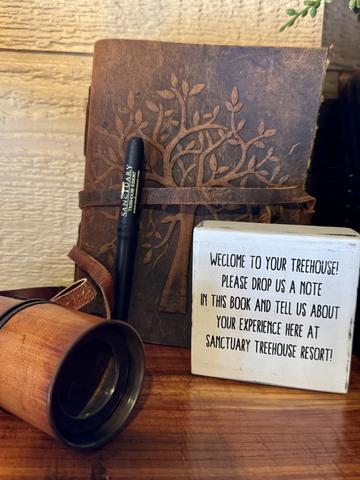 SANCTUARY
TREEHOUSE RESORT
WELCOME TO YOUR TREEHOUSE!
PLEASE DROP US A NOTE
IN THIS BOOK AND TELL US ABOUT
YOUR EXPERIENCE HERE AT
SANCTUARY TREEHOUSE RESORT!